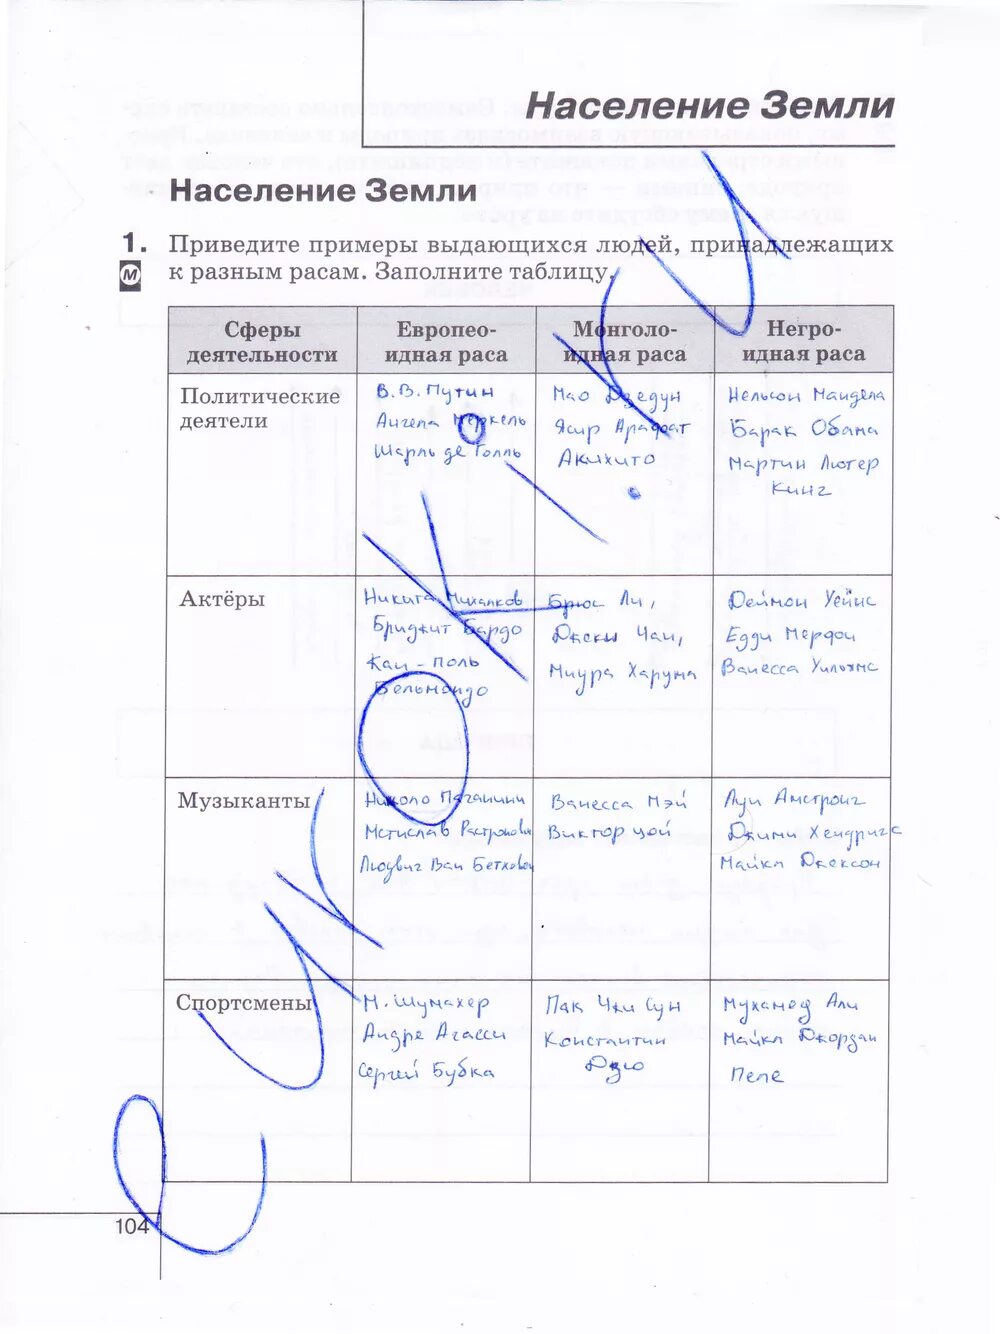 Население Земли
Население Земли
1. Приведите примеры выдающихся людей, принадлежащих
М к разным расам. Заполните таблицу.
Сферы деятельности
Европео-
идная раса
Монголо-
идная раса
Негро-
идная раса
Политические
деятели
В.В. Путин
Ангела Меркель
Шарль де Голль
Мао Дзедун
Ясир Арафат
Акихито
Нельсон Мандела
Барак Обама
Мартин Лютер
Кинг
Актёры
Никита Михалков
Бриджит Бардо
Жан-поль
Бельмондо
Брюс Ли,
Джеки Чан,
Миура Харума
Деймон Уейнс
Едди Мерфи
Ванесса Уильямс
Музыканты
Николо Паганини
Мстислав Растропович
Людвиг Ван Бетховен
Ванесса Мэй
Виктор Цой
Луи Амстронг
Джими Хендрикс
Майкл Джексон
Спортсмены
М. Шумахер
Андре Агасси
Сергей Бубка
Пак Чжи Сун
Константин
Дзю
Мухамед Али
Майкл Джордан
Пеле
104